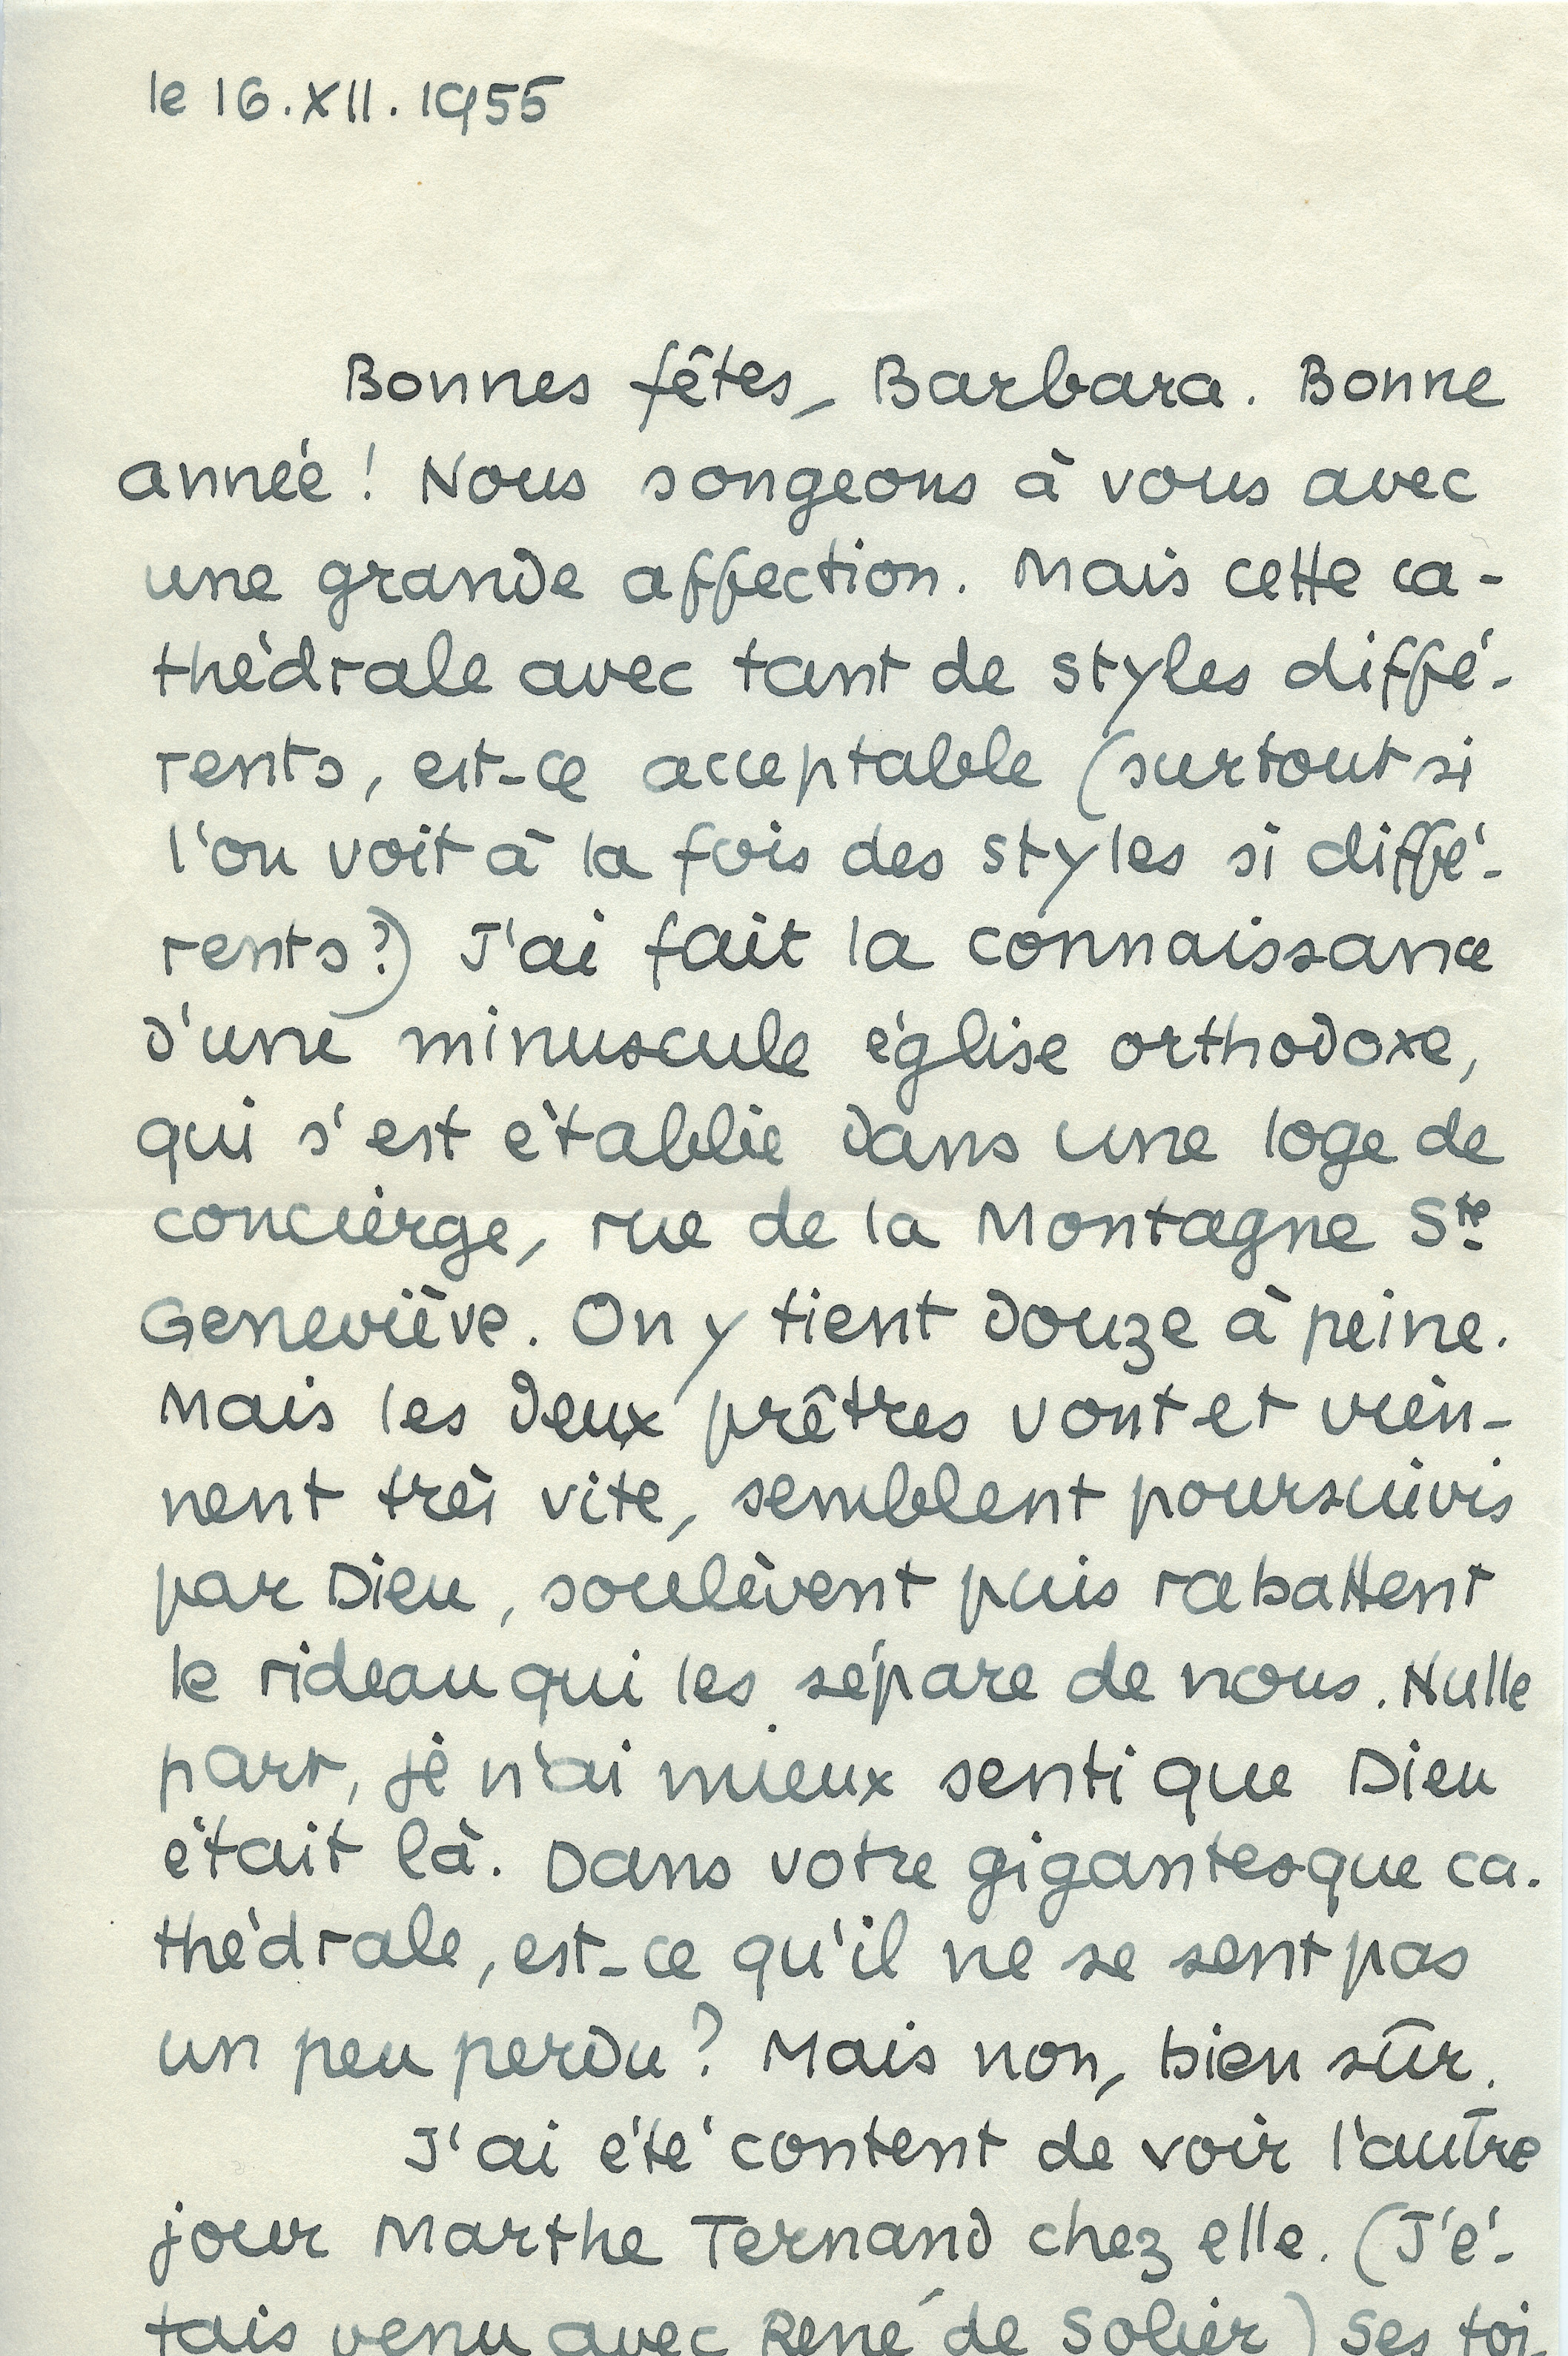 le 16.XII.1955
Bonnes fêtes, Barbara. Bonne
année ! Nous songeons à vous avec
une grande affection. Mais cette ca-
thédrale avec tant de styles diffé-
rents, est-ce acceptable (surtout si
l'on voit à la fois des styles si diffé-
rents ?) J'ai fait la connaissance
d'une minuscule église orthodoxe,
qui s'est établie dans une loge de
concierge, rue de la Montagne Ste
Geneviève. On y tient douze à peine.
Mais les deux prêtres vont et vien-
nent très vite, semblent poursuivis
par Dieu, soulèvent puis rabattent
le rideau qui les sépare de nous. Nulle
part, je n'ai mieux senti que Dieu
était là. Dans votre gigantesque ca-
thédrale, est-ce qu'il ne se sent pas
un peu perdu ? Mais non, bien sûr.
J'ai été content de voir l'autre
jour Marthe Ternand chez elle. (J'é-
tais venu avec René de Solier) Ses toi